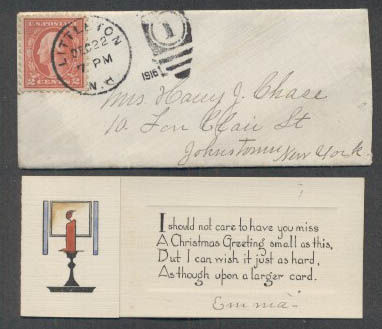 U.S. POSTAGE
2 CENTS 2
LITTLETON
DEC 22
PM
1916
1
Mrs. Harry J. Chase
10 Clair St
Johnstown New York.
I should not care to have you miss
A Christmas Greeting small as this,
But I can wish it just as hard,
As though upon a larger card.
Emma